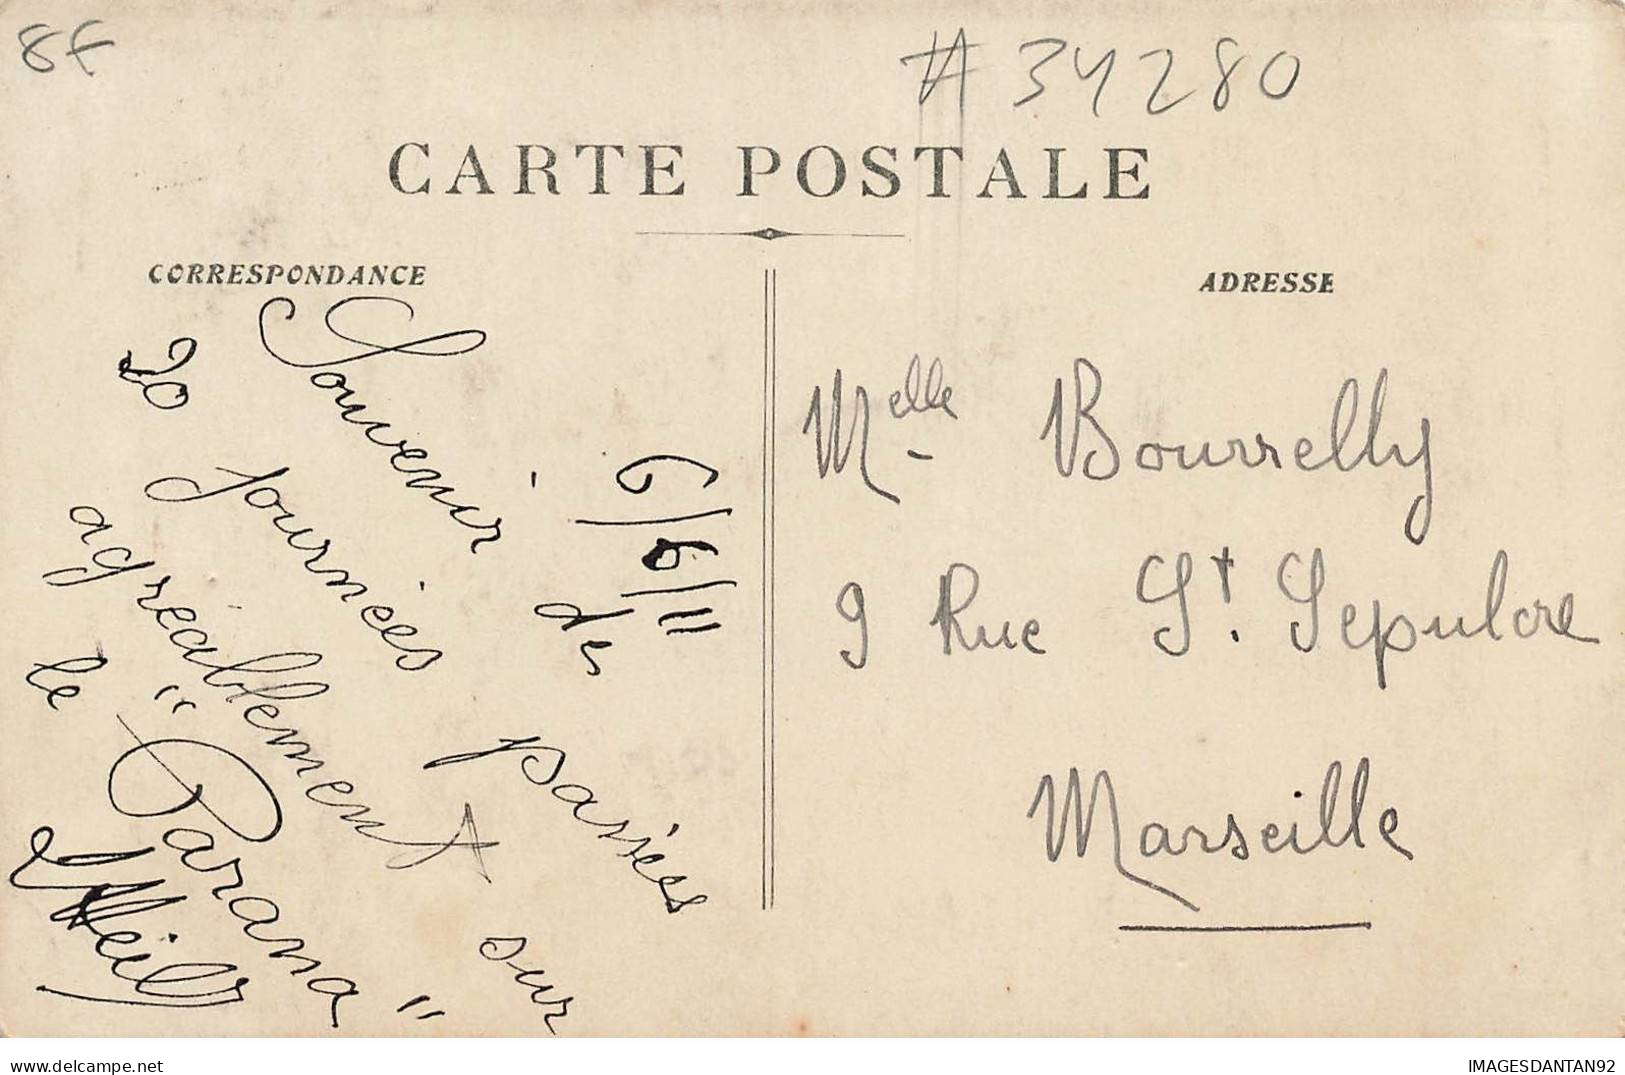 8€
#34280
CARTE POSTALE
CORRESPONDANCE
ADRESSE
6/6/11
Souvenir des
20 journées passées
agréablement sur
le "Parana"
Melle Bourrelly
9 Rue St. Sepulcre
Marseille
delcampe.net
IMAGESDANTAN92